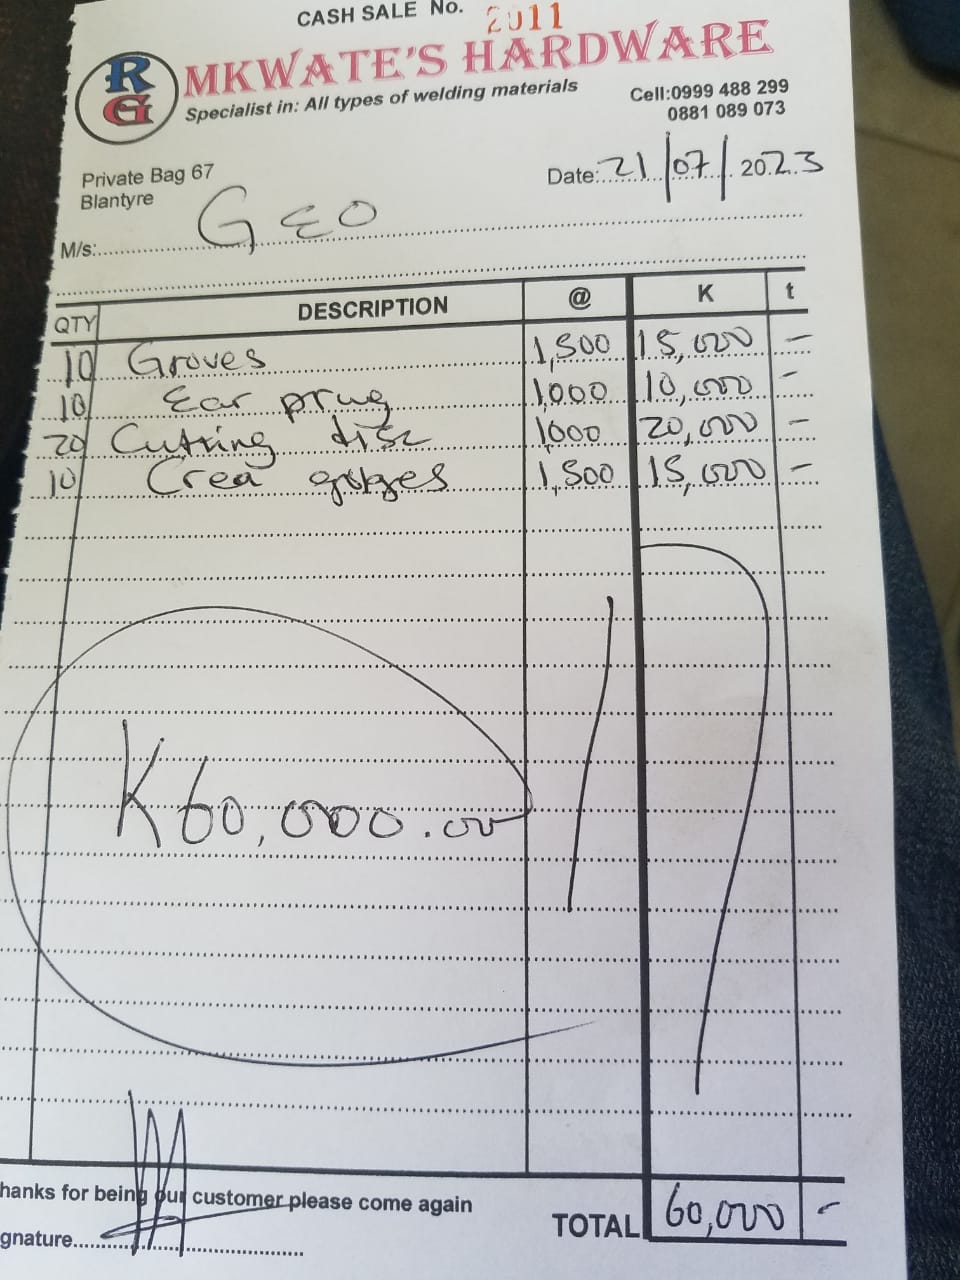 CASH SALE No. 2011
RG
MKWATE'S HARDWARE
Specialist in: All types of welding materials
Cell:0999 488 299
0881 089 073
Private Bag 67
Blantyre
Date: 21/07/2023
M/s: GEO
QTY DESCRIPTION @ K t
10 Groves 1,500 15,000 -
10 Ear prug 1000 10,000 -
20 Cutting disc 1000 20,000 -
10 Crea 1,500 15,000 -
K60,000.00
hanks for being our customer please come again
gnature
TOTAL 60,000 -